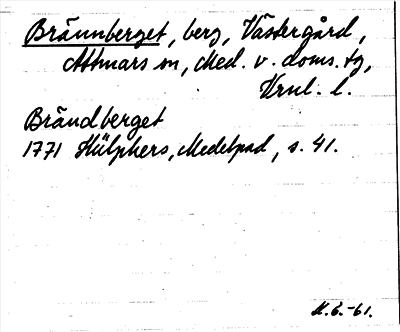 Brännberget, berg, Västergård,
Attmars sn, Med. v. doms. tg,
Vrnl. l.
Brändberget
1771 Hülphers, Medelpad, s. 41.
H.G.-61.